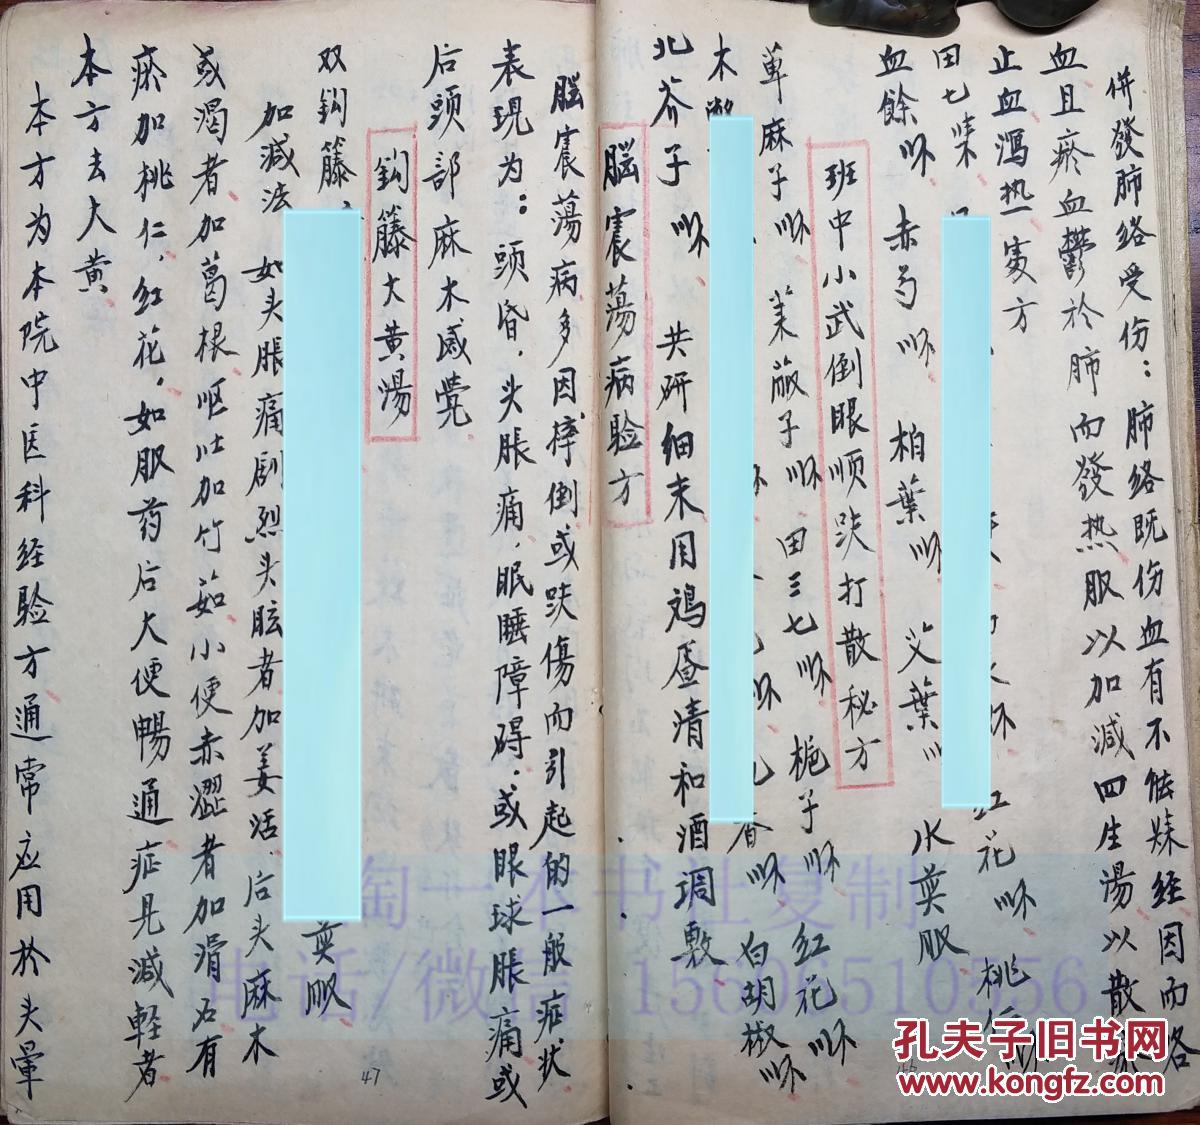 併發肺络受伤：肺络既伤血有不能妹经因而咯
血且瘀血鬱於肺而發热服以加减四生湯以散瘀
止血瀉热一寞方
田七 红花 桃仁
血餘 赤芍 柏葉 艾葉 水煎服
班中小武倒眼顺跌打散秘方
草麻子 田三七 栀子 红花
木 香 白胡椒
北芥子 共研细末用鸡蛋清和酒调敷
脳震蕩病验方
脳震蕩病多因摔倒或跌傷而引起的一般症状
表现为：头昏，头脹痛，眠睡障碍，或眼球脹痛或
后頭部麻木感觉
鈎籐大黄湯
双鈎籐 煎服
加减法 如头脹痛剧烈头眩者加姜活，后头麻木
或渴者加葛根呕吐加竹茹小便赤澀者加滑石有
瘀加桃仁，红花，如服药后大便暢通症見减軽者
本方去大黄
本方为本院中医科经验方通常应用於头暈
47
淘一本书社复制
电话/微信 15606510556
孔夫子旧书网
www.kongfz.com